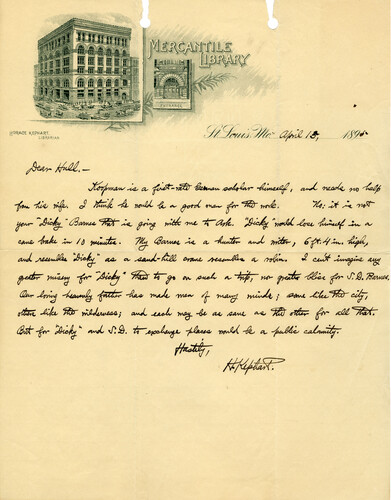 MERCANTILE
LIBRARY
ENTRANCE
HORACE KEPHART,
LIBRARIAN.
St. Louis, Mo. April 12, 1895
Dear Hull,—
Koopman is a first-rate German scholar himself, and needs no help
from his wife. I think he would be a good man for the work. No; it is not
your "Dicky" Barnes that is going with me to Ark. "Dicky" would lose himself in a
cane brake in 10 minutes. My Barnes is a hunter and writer, 6 ft. 4 in. high,
and resembles "Dicky" as a sand-hill crane resembles a robin. I can't imagine any
greater misery for "Dicky" than to go on such a trip, no greater bliss for S.D. Barnes.
Our loving heavenly father has made men of many minds; some like the city,
others like the wilderness; and each may be as sane as the other for all that.
But for "Dicky" and S.D. to exchange places would be a public calamity.
Hastily,
H. Kephart.